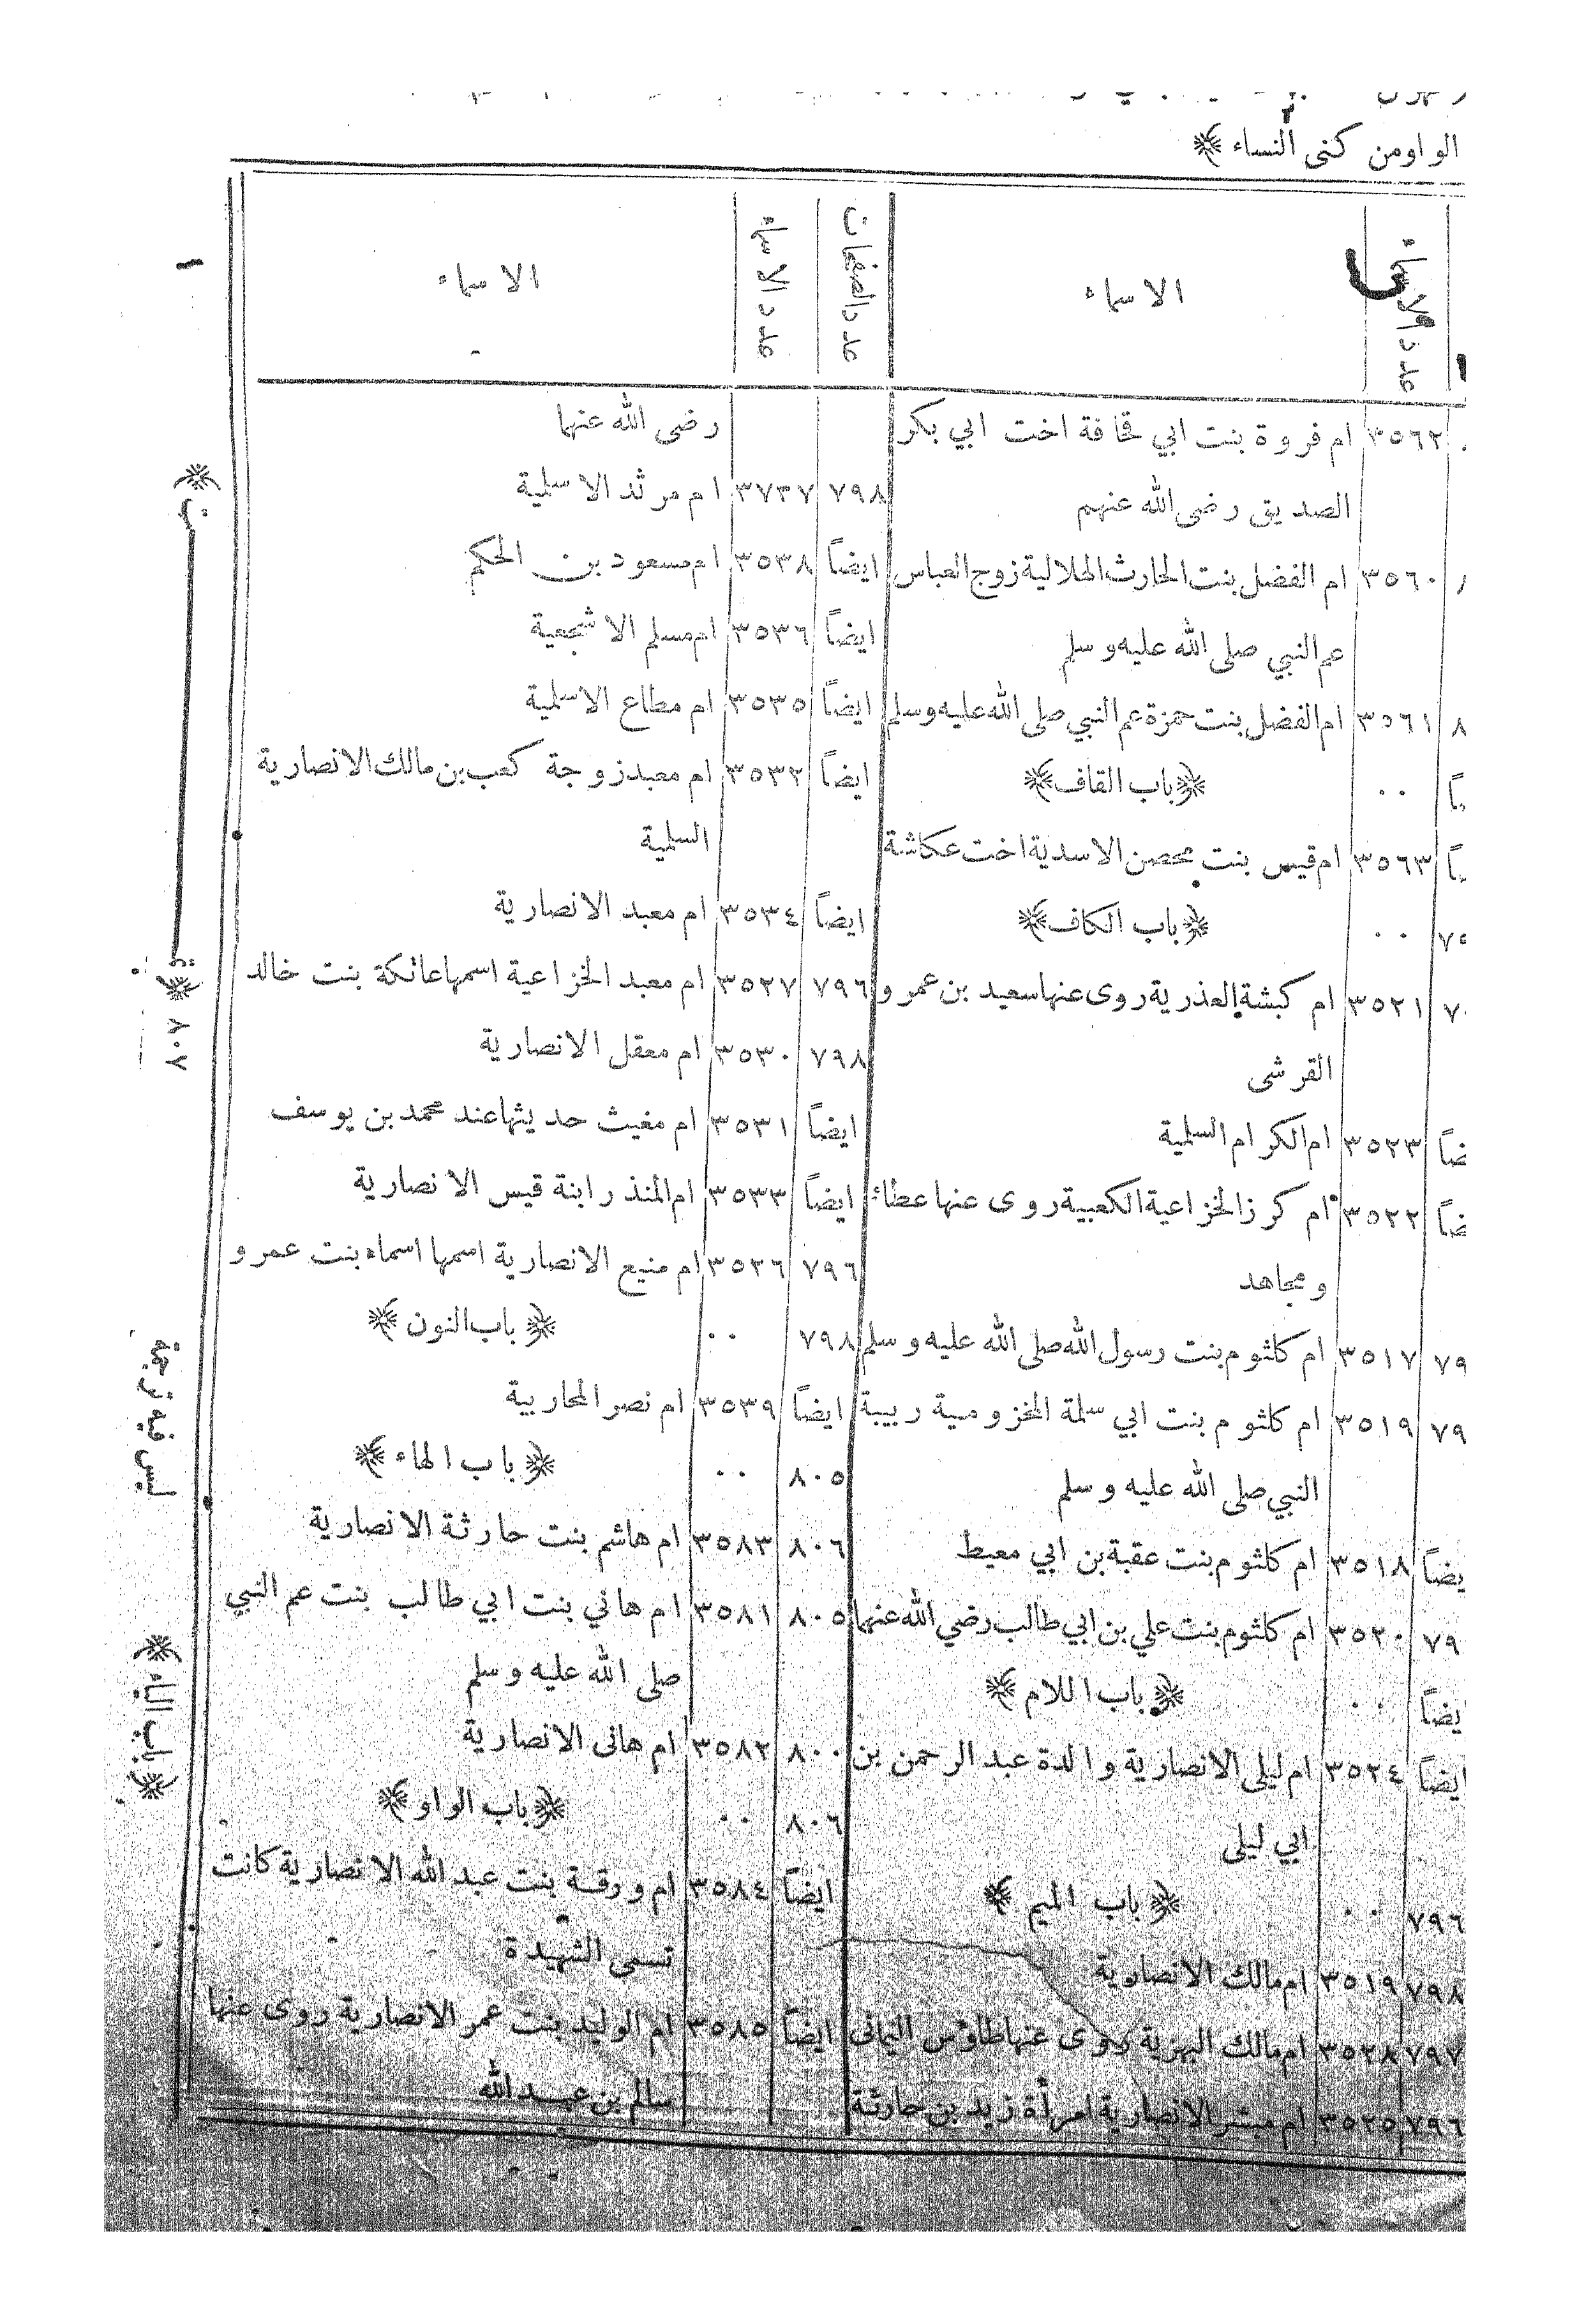 الواو من كنى النساء ﴾
عدد الاسماء
الاسماء
٣٥٦٢ ام فروة بنت ابي قحافة اخت ابي بكر
الصديق رضى الله عنهم
٣٥٦٠ ام الفضل بنت الحارث الهلالية زوج العباس
عم النبي صلى الله عليه وسلم
٨ ٣٥٦١ ام الفضل بنت حمزة عم النبي صلى الله عليه وسلم
٠٠ ﴿ باب القاف ﴾
٣٥٦٣ ام قيس بنت محصن الاسدية اخت عكاشة
٠٠ ﴿ باب الكاف ﴾
٣٥٢١ ام كبشة العذرية روى عنها سعيد بن عمرو
القرشى
ضاً ٣٥٢٣ ام الكرام السلمية
ضاً ٣٥٢٢ ام كرز الخزاعية الكعبية روى عنها عطاء
و مجاهد
٧٩ ٣٥١٧ ام كلثوم بنت رسول الله صلى الله عليه وسلم
٧٩ ٣٥١٩ ام كلثوم بنت ابي سلمة المخزومية ربيبة
النبي صلى الله عليه وسلم
يضاً ٣٥١٨ ام كلثوم بنت عقبة بن ابي معيط
٧٩ ٣٥٢٠ ام كلثوم بنت علي بن ابي طالب رضي الله عنهما
يضاً ٠٠ ﴿ باب اللام ﴾
ايضاً ٣٥٢٤ ام ليلى الانصارية والدة عبد الرحمن بن
ابي ليلى
٧٩٦ ٠٠ ﴿ باب الميم ﴾
٧٩٨ ٣٥١٩ ام مالك الانصارية
٧٩٧ ٣٥٢٨ ام مالك البهزية روى عنها طاؤس اليمانى
٧٩٦ ٣٥٢٥ ام مبشر الانصارية امرأة زيد بن حارثة
عدد الصفحات
عدد الاسماء
الاسماء
رضى الله عنهما
٧٩٨ ٣٧٣٧ ام مرثد الاسلمية
ايضاً ٣٥٣٨ ام مسعود بن الحكم
ايضاً ٣٥٣٦ ام مسلم الاشجعية
ايضاً ٣٥٣٥ ام مطاع الاسلمية
ايضاً ٣٥٣٢ ام معبد زوجة كعب بن مالك الانصارية
السلمية
ايضاً ٣٥٣٤ ام معبد الانصارية
٧٩٦ ٣٥٢٧ ام معبد الخزاعية اسمها عاتكة بنت خالد
٧٩٨ ٣٥٣٠ ام معقل الانصارية
ايضاً ٣٥٣١ ام مغيث حديثها عند محمد بن يوسف
ايضاً ٣٥٣٣ ام المنذر ابنة قيس الانصارية
٧٩٦ ٣٥٢٦ ام منيع الانصارية اسمها اسماء بنت عمرو
٧٩٨ ٠٠ ﴿ باب النون ﴾
ايضاً ٣٥٣٩ ام نصر المحاربية
٨٠٥ ٠٠ ﴿ باب الهاء ﴾
٨٠٦ ٣٥٨٣ ام هاشم بنت حارثة الانصارية
٨٠٥ ٣٥٨١ ام هاني بنت ابي طالب بنت عم النبي
صلى الله عليه وسلم
٨٠٠ ٣٥٨٢ ام هانى الانصارية
٨٠٦ ٠٠ ﴿ باب الواو ﴾
ايضاً ٣٥٨٤ ام ورقة بنت عبد الله الانصارية كانت
تسمى الشهيدة
ايضاً ٣٥٨٥ ام الوليد بنت عمر الانصارية روى عنها
سالم بن عبد الله
٨٠٧
ليس فيه ترجمة
﴿ باب الياء ﴾